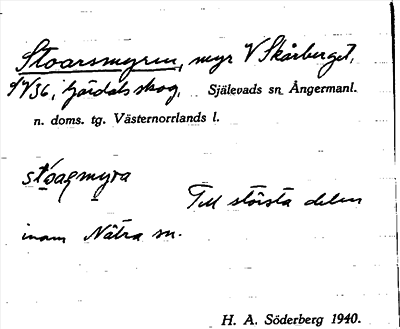 Stoarsmyren, myr V Skårberget,
d 4/36, Gärdals skog, Själevads sn Ångermanl.
n. doms. tg. Västernorrlands l.
stoaṣmyra
Till största delen
inom Nätra sn.
H. A. Söderberg 1940.